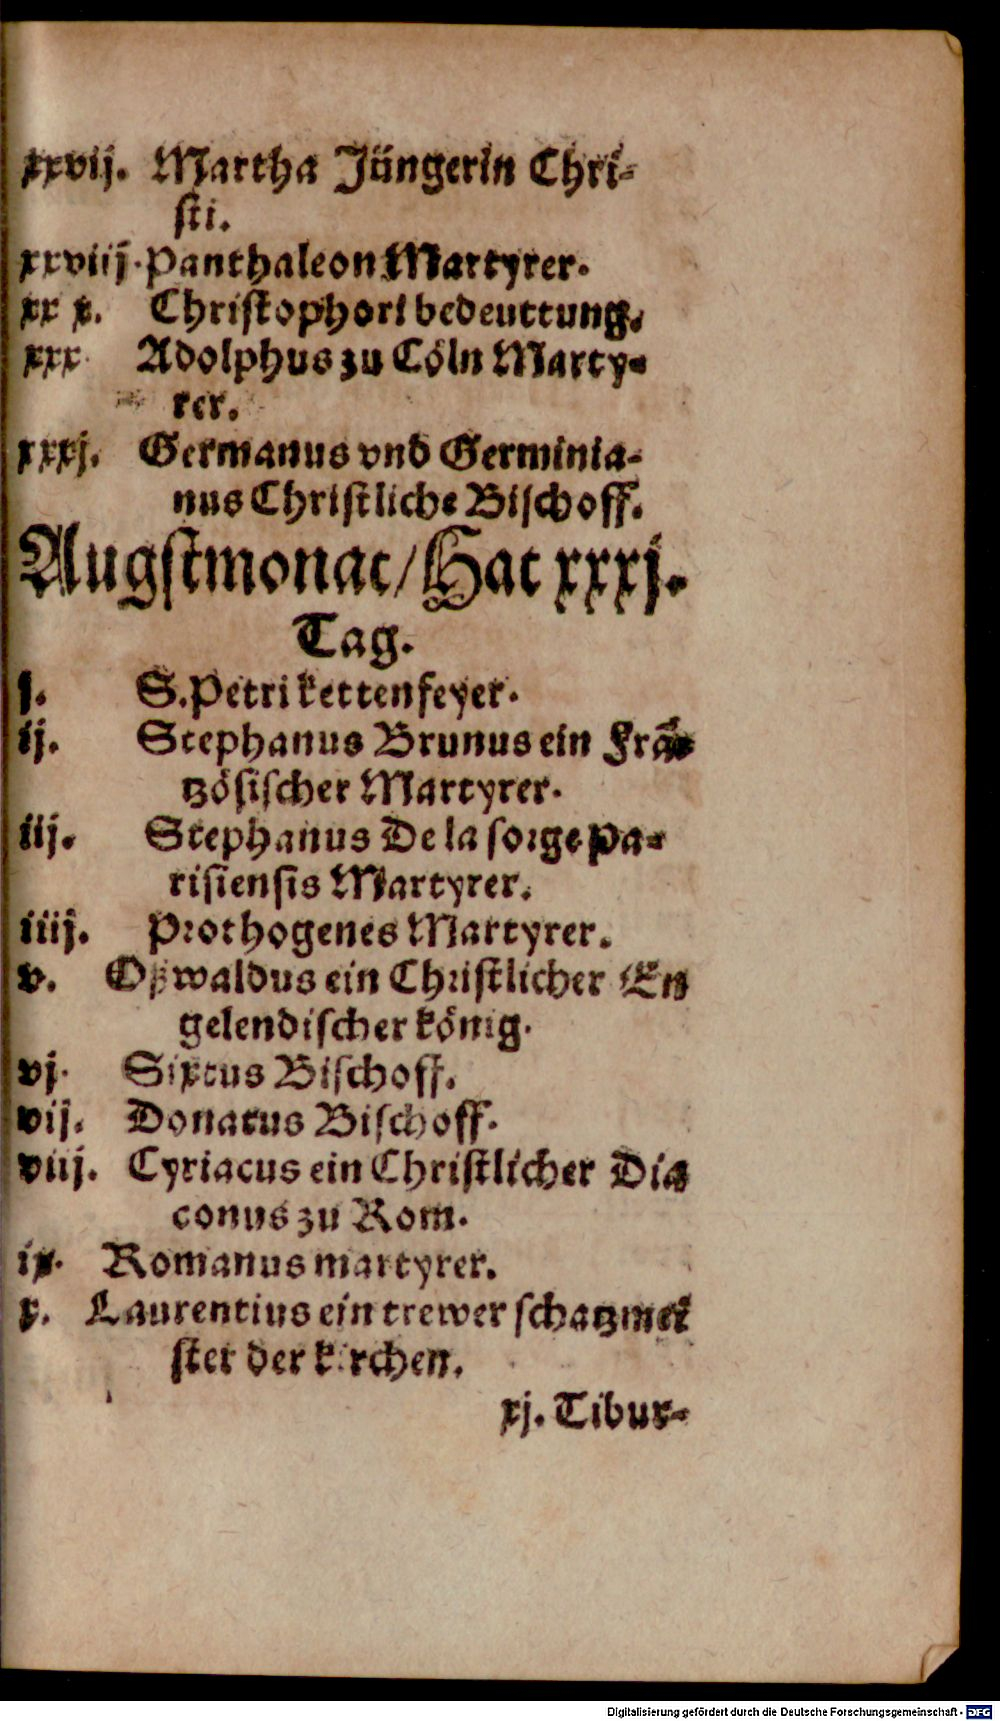 xxvij. Martha Jüngerin Chri-
sti.
xxviij. Panthaleon Martyrer.
xx x. Christophori bedeuttung.
xxx. Adolphus zu Cöln Marty-
rer.
xxxj. Germanus vnd Germinia-
nus Christliche Bischoff.
Augstmonat/Hat xxxj.
Tag.
j. S. Petri kettenfeyer.
ij. Stephanus Brunus ein Frã-
tzösischer Martyrer.
iij. Stephanus De la sorge Pa-
risiensis Martyrer.
iiij. Prothogenes Martyrer.
v. Oßwaldus ein Christlicher En
gelendischer könig.
vj. Sixtus Bischoff.
vij. Donatus Bischoff.
viij. Cyriacus ein Christlicher Dia
conus zu Rom.
ix. Romanus martyrer.
x. Laurentius ein trewer schatzmei
ster der kirchen.
xj. Tibur-
Digitalisierung gefördert durch die Deutsche Forschungsgemeinschaft - DFG